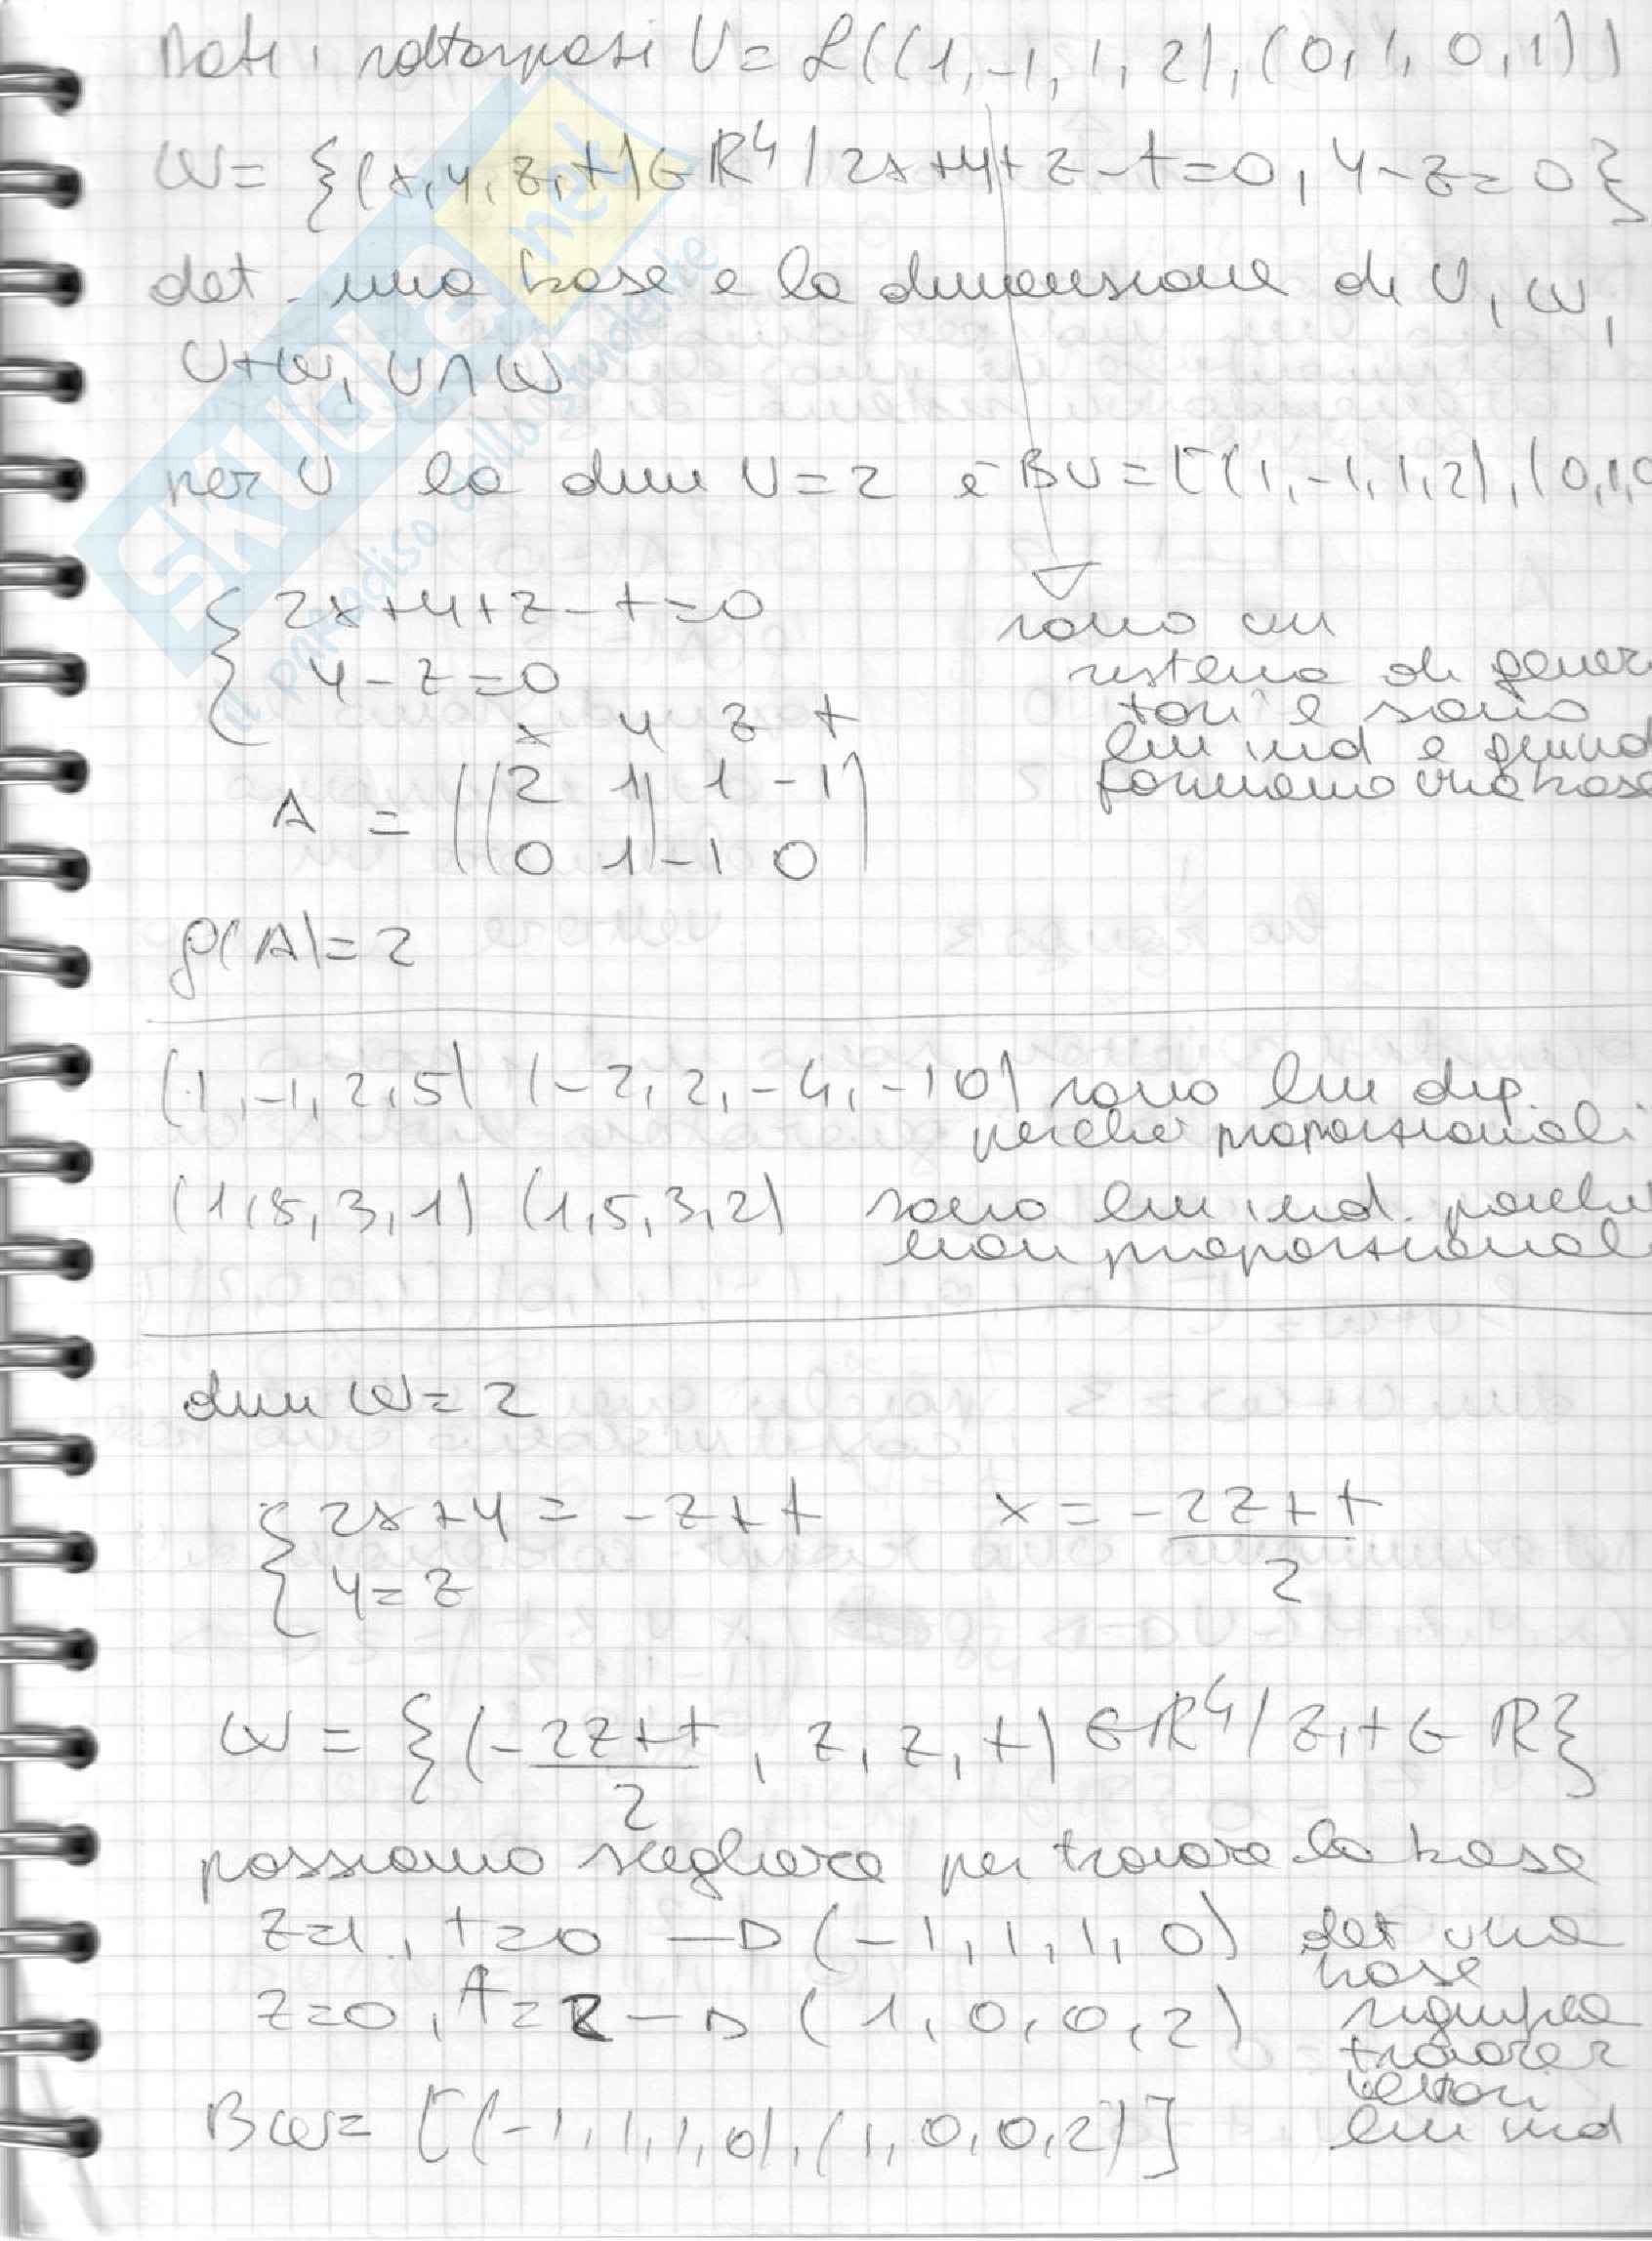 Dati i sottospazi U = L((1,-1,1,2),(0,1,0,1))
W = {(x,y,z,t)∈R⁴/2x+y+z-t=0, y-z=0}
det. una base e la dimensione di U, W,
U+W, U∩W
per U la dim U=2 e BU=[(1,-1,1,2),(0,1,0
{2x+y+z-t=0
y-z=0
sono un
sistema di genera
tori e sono
lin ind e quind
formano una base
x y z t
A = ((2 1) 1 -1
0 1 -1 0)
ρ(A)=2
(1,-1,2,5) (-2,2,-4,-10) sono lin dip.
perché proporzionali
(1,5,3,1) (1,5,3,2) sono lin ind. perché
non proporzionali
dim W=2
{2x+y=-z+t x = -2z+t/2
y=z
W = {(-2z+t/2, z, z, t)∈R⁴/z,t∈R}
possiamo scegliere per trovare la base
z=1, t=0 → (-1,1,1,0) det una
base
z=0, t=2 → (1,0,0,2) significa
trovare
vettori
lin ind
BW= [(-1,1,1,0),(1,0,0,2)]
SKUOLA.net
il paradiso dello studente